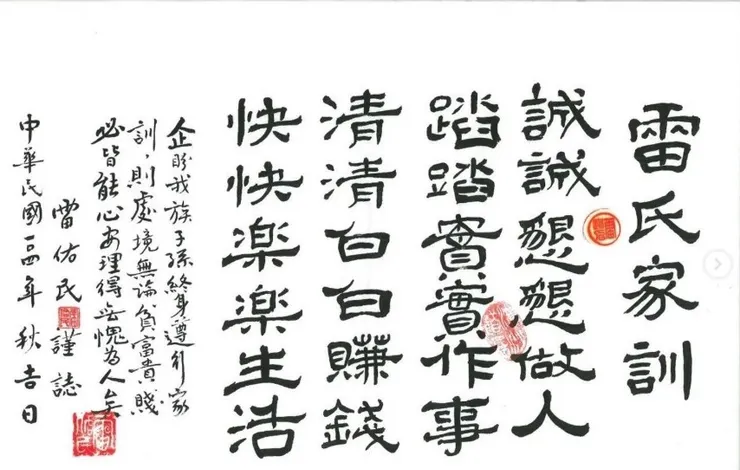 雷氏家訓
誠誠懇懇做人
踏踏實實作事
清清白白賺錢
快快楽楽生活
企盼我族子孫終身遵行家
訓，則處境無論貧富貴賤
必皆能心安理得無愧為人矣
雷佑民謹誌
中華民國一一四年秋吉日